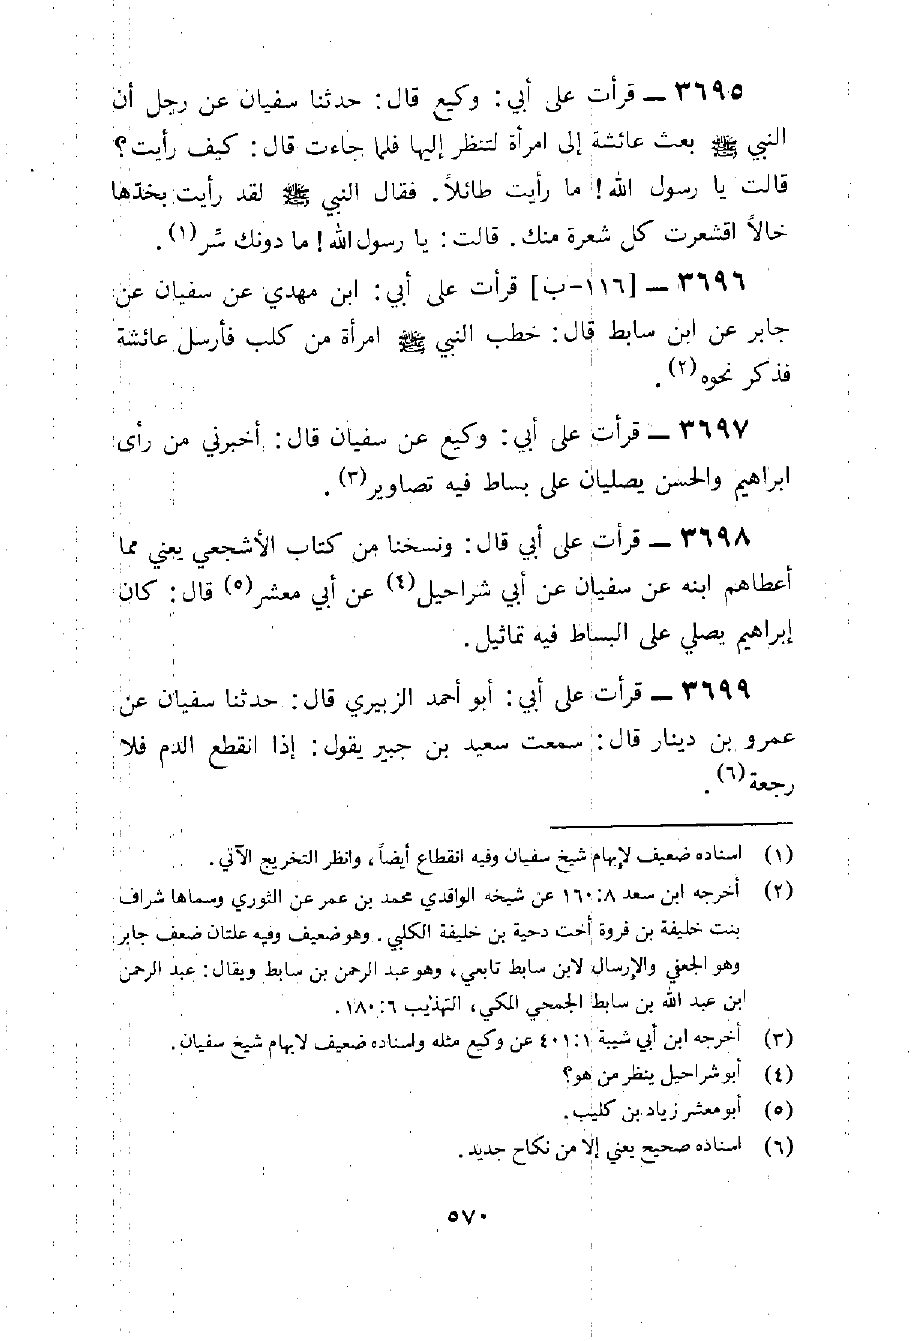 ٣٦٩٥ ــ قرأت على أبي: وكيع قال: حدثنا سفيان عن رجل أن
النبي ﷺ بعث عائشة إلى امرأة لتنظر إليها فلما جاءت قال: كيف رأيت؟
قالت يا رسول الله! ما رأيت طائلاً. فقال النبي ﷺ لقد رأيت بخدّها
خالاً اقشعرت كل شعرة منك. قالت: يا رسول الله! ما دونك سّر(١).
٣٦٩٦ ــ [١١٦-ب] قرأت على أبي: ابن مهدي عن سفيان عن
جابر عن ابن سابط قال: خطب النبي ﷺ امرأة من كلب فأرسل عائشة
فذكر نحوه(٢).
٣٦٩٧ ــ قرأت على أبي: وكيع عن سفيان قال: أخبرني من رأى
ابراهيم والحسن يصليان على بساط فيه تصاوير(٣).
٣٦٩٨ ــ قرأت على أبي قال: ونسخنا من كتاب الأشجعي يعني مما
أعطاهم ابنه عن سفيان عن أبي شراحيل(٤) عن أبي معشر(٥) قال: كان
إبراهيم يصلي على البساط فيه تماثيل.
٣٦٩٩ ــ قرأت على أبي: أبو أحمد الزبيري قال: حدثنا سفيان عن
عمرو بن دينار قال: سمعت سعيد بن جبير يقول: إذا انقطع الدم فلا
رجعة(٦).
(١) اسناده ضعيف لإبهام شيخ سفيان وفيه انقطاع أيضاً، وانظر التخريج الآتي.
(٢) أخرجه ابن سعد ٨:١٦٠ عن شيخه الواقدي محمد بن عمر عن الثوري وسماها شراف
بنت خليفة بن فروة أخت دحية بن خليفة الكلبي. وهو ضعيف وفيه علتان ضعف جابر
وهو الجعفي والإرسال لابن سابط تابعي، وهو عبد الرحمن بن سابط ويقال: عبد الرحمن
ابن عبد الله بن سابط الجمحي المكي، التهذيب ٦:١٨٠.
(٣) أخرجه ابن أبي شيبة ١:٤٠١ عن وكيع مثله واسناده ضعيف لابهام شيخ سفيان.
(٤) أبو شراحيل ينظر من هو؟
(٥) أبو معشر زياد بن كليب.
(٦) اسناده صحيح يعني إلا من نكاح جديد.
٥٧٠